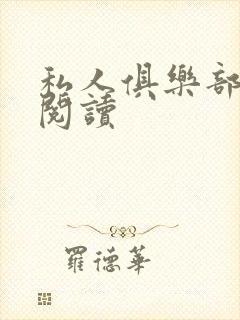 私人俱樂部
閱讀
羅德華